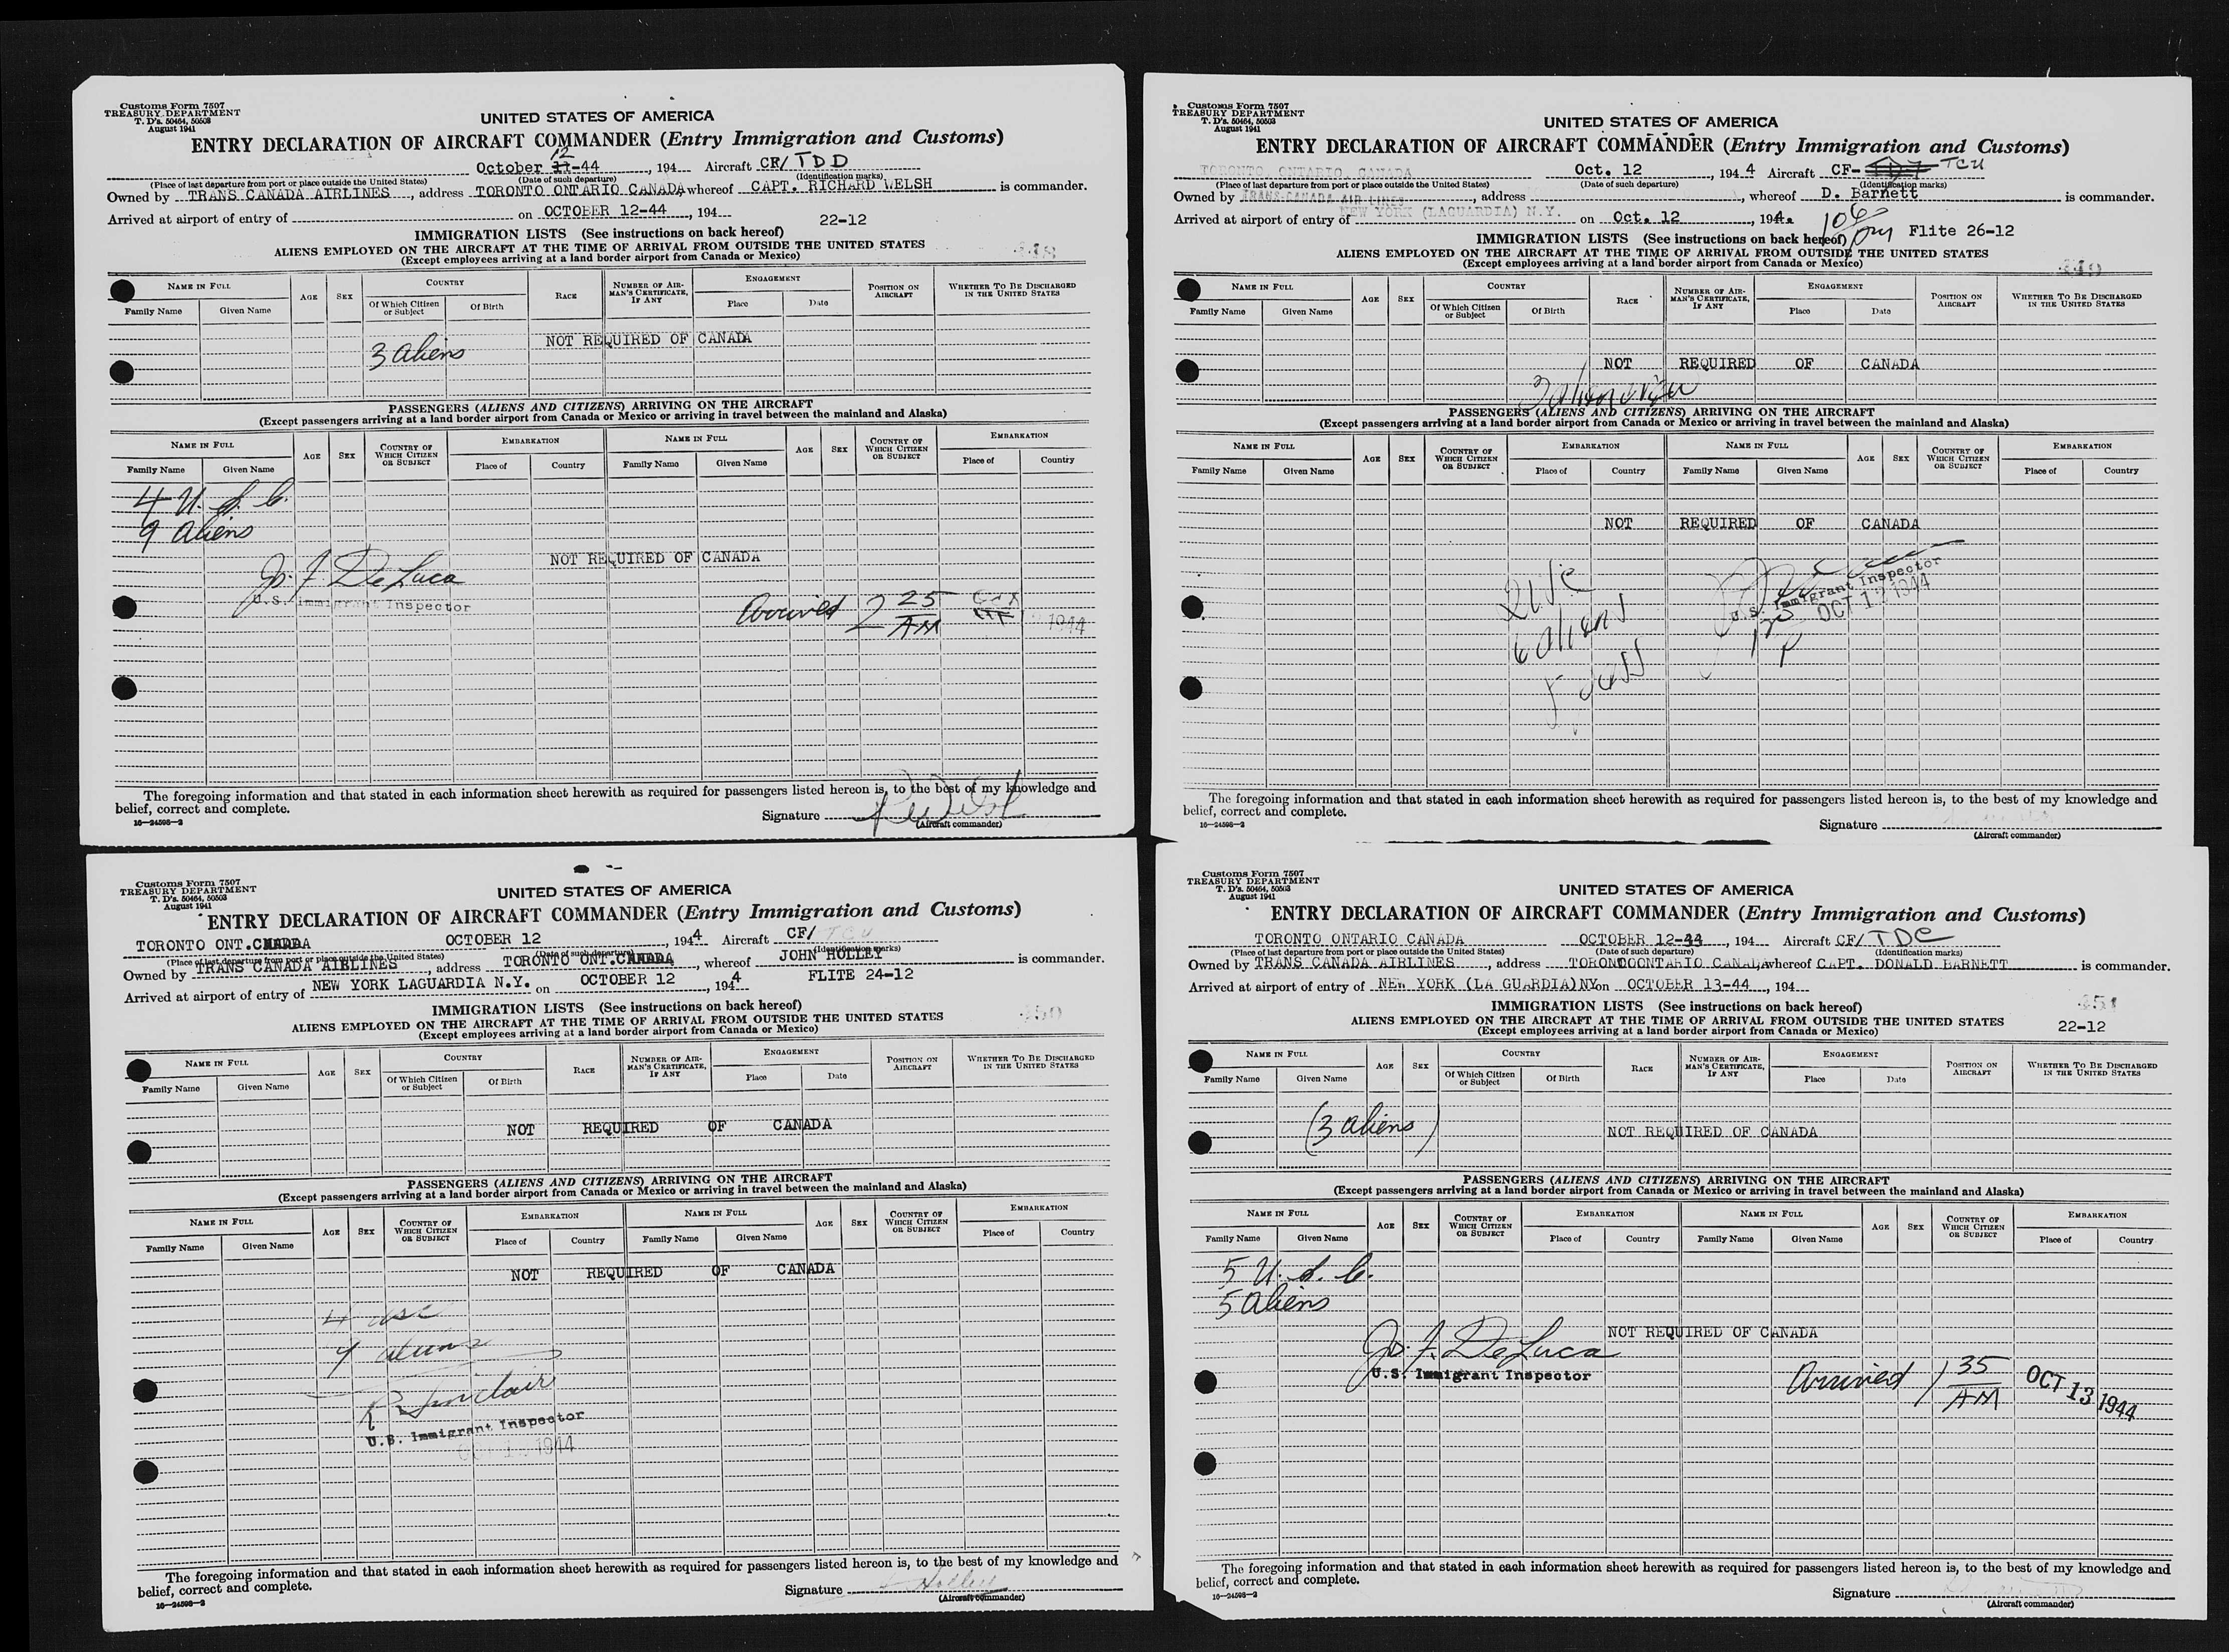 Customs Form 7507
TREASURY DEPARTMENT
T. D's. 50464, 50503
August 1941
UNITED STATES OF AMERICA
ENTRY DECLARATION OF AIRCRAFT COMMANDER (Entry Immigration and Customs)
October 12 -44, 194 Aircraft CF/ TDD
(Place of last departure from port or place outside the United States) (Date of such departure) (Identification marks)
Owned by TRANS CANADA AIRLINES, address TORONTO ONTARIO CANADA, whereof CAPT. RICHARD WELSH is commander.
Arrived at airport of entry of on OCTOBER 12-44, 194 22-12
IMMIGRATION LISTS (See instructions on back hereof)
ALIENS EMPLOYED ON THE AIRCRAFT AT THE TIME OF ARRIVAL FROM OUTSIDE THE UNITED STATES
(Except employees arriving at a land border airport from Canada or Mexico)
NAME IN FULL AGE SEX COUNTRY RACE NUMBER OF AIRMAN'S CERTIFICATE, IF ANY ENGAGEMENT POSITION ON AIRCRAFT WHETHER TO BE DISCHARGED IN THE UNITED STATES
Family Name Given Name Of Which Citizen or Subject Of Birth Place Date
NOT REQUIRED OF CANADA
3 aliens
PASSENGERS (ALIENS AND CITIZENS) ARRIVING ON THE AIRCRAFT
(Except passengers arriving at a land border airport from Canada or Mexico or arriving in travel between the mainland and Alaska)
NAME IN FULL AGE SEX COUNTRY OF WHICH CITIZEN OR SUBJECT EMBARKATION NAME IN FULL AGE SEX COUNTRY OF WHICH CITIZEN OR SUBJECT EMBARKATION
Family Name Given Name Place of Country Family Name Given Name Place of Country
4 U. S. C.
9 aliens
NOT REQUIRED OF CANADA
Jos. F. DeLuca
U.S. Immigrant Inspector
Arrived 2 25 AM 1944
The foregoing information and that stated in each information sheet herewith as required for passengers listed hereon is, to the best of my knowledge and
belief, correct and complete.
Signature
16—24598-2 (Aircraft commander)
Customs Form 7507
TREASURY DEPARTMENT
T. D's. 50464, 50503
August 1941
UNITED STATES OF AMERICA
ENTRY DECLARATION OF AIRCRAFT COMMANDER (Entry Immigration and Customs)
TORONTO, ONTARIO, CANADA Oct. 12, 194 4 Aircraft CF- TCU
(Place of last departure from port or place outside the United States) (Date of such departure) (Identification marks)
Owned by TRANS-CANADA AIR LINES, address , whereof D. Barnett is commander.
Arrived at airport of entry of NEW YORK (LAGUARDIA) N.Y. on Oct. 12, 194 4. Flite 26-12
IMMIGRATION LISTS (See instructions on back hereof)
ALIENS EMPLOYED ON THE AIRCRAFT AT THE TIME OF ARRIVAL FROM OUTSIDE THE UNITED STATES
(Except employees arriving at a land border airport from Canada or Mexico)
NAME IN FULL AGE SEX COUNTRY RACE NUMBER OF AIRMAN'S CERTIFICATE, IF ANY ENGAGEMENT POSITION ON AIRCRAFT WHETHER TO BE DISCHARGED IN THE UNITED STATES
Family Name Given Name Of Which Citizen or Subject Of Birth Place Date
NOT REQUIRED OF CANADA
PASSENGERS (ALIENS AND CITIZENS) ARRIVING ON THE AIRCRAFT
(Except passengers arriving at a land border airport from Canada or Mexico or arriving in travel between the mainland and Alaska)
NAME IN FULL AGE SEX COUNTRY OF WHICH CITIZEN OR SUBJECT EMBARKATION NAME IN FULL AGE SEX COUNTRY OF WHICH CITIZEN OR SUBJECT EMBARKATION
Family Name Given Name Place of Country Family Name Given Name Place of Country
NOT REQUIRED OF CANADA
6 aliens
U.S. Immigrant Inspector
OCT 12 1944
The foregoing information and that stated in each information sheet herewith as required for passengers listed hereon is, to the best of my knowledge and
belief, correct and complete.
Signature
16—24598-2 (Aircraft commander)
Customs Form 7507
TREASURY DEPARTMENT
T. D's. 50464, 50503
August 1941
UNITED STATES OF AMERICA
ENTRY DECLARATION OF AIRCRAFT COMMANDER (Entry Immigration and Customs)
TORONTO ONT. CANADA OCTOBER 12, 194 4 Aircraft CF/ TCU
(Place of last departure from port or place outside the United States) (Date of such departure) (Identification marks)
Owned by TRANS CANADA AIRLINES, address TORONTO ONT. CANADA, whereof JOHN HOLLEY is commander.
Arrived at airport of entry of NEW YORK LAGUARDIA N.Y. on OCTOBER 12, 194 4 FLITE 24-12
IMMIGRATION LISTS (See instructions on back hereof)
350
ALIENS EMPLOYED ON THE AIRCRAFT AT THE TIME OF ARRIVAL FROM OUTSIDE THE UNITED STATES
(Except employees arriving at a land border airport from Canada or Mexico)
NAME IN FULL AGE SEX COUNTRY RACE NUMBER OF AIRMAN'S CERTIFICATE, IF ANY ENGAGEMENT POSITION ON AIRCRAFT WHETHER TO BE DISCHARGED IN THE UNITED STATES
Family Name Given Name Of Which Citizen or Subject Of Birth Place Date
NOT REQUIRED OF CANADA
PASSENGERS (ALIENS AND CITIZENS) ARRIVING ON THE AIRCRAFT
(Except passengers arriving at a land border airport from Canada or Mexico or arriving in travel between the mainland and Alaska)
NAME IN FULL AGE SEX COUNTRY OF WHICH CITIZEN OR SUBJECT EMBARKATION NAME IN FULL AGE SEX COUNTRY OF WHICH CITIZEN OR SUBJECT EMBARKATION
Family Name Given Name Place of Country Family Name Given Name Place of Country
NOT REQUIRED OF CANADA
4 usc
9 aliens
R Sinclair
U.S. Immigrant Inspector
The foregoing information and that stated in each information sheet herewith as required for passengers listed hereon is, to the best of my knowledge and
belief, correct and complete.
Signature J Holley
16—24598-2 (Aircraft commander)
Customs Form 7507
TREASURY DEPARTMENT
T. D's. 50464, 50503
August 1941
UNITED STATES OF AMERICA
ENTRY DECLARATION OF AIRCRAFT COMMANDER (Entry Immigration and Customs)
TORONTO ONTARIO CANADA OCTOBER 12-44, 194 Aircraft CF/ TDC
(Place of last departure from port or place outside the United States) (Date of such departure) (Identification marks)
Owned by TRANS CANADA AIRLINES, address TORONTO ONTARIO CANADA, whereof CAPT. DONALD BARNETT is commander.
Arrived at airport of entry of NEW YORK (LA GUARDIA) NY on OCTOBER 13-44, 194
IMMIGRATION LISTS (See instructions on back hereof)
351
ALIENS EMPLOYED ON THE AIRCRAFT AT THE TIME OF ARRIVAL FROM OUTSIDE THE UNITED STATES
22-12
(Except employees arriving at a land border airport from Canada or Mexico)
NAME IN FULL AGE SEX COUNTRY RACE NUMBER OF AIRMAN'S CERTIFICATE, IF ANY ENGAGEMENT POSITION ON AIRCRAFT WHETHER TO BE DISCHARGED IN THE UNITED STATES
Family Name Given Name Of Which Citizen or Subject Of Birth Place Date
(3 aliens)
NOT REQUIRED OF CANADA
PASSENGERS (ALIENS AND CITIZENS) ARRIVING ON THE AIRCRAFT
(Except passengers arriving at a land border airport from Canada or Mexico or arriving in travel between the mainland and Alaska)
NAME IN FULL AGE SEX COUNTRY OF WHICH CITIZEN OR SUBJECT EMBARKATION NAME IN FULL AGE SEX COUNTRY OF WHICH CITIZEN OR SUBJECT EMBARKATION
Family Name Given Name Place of Country Family Name Given Name Place of Country
5 U. S. C.
5 aliens
NOT REQUIRED OF CANADA
Jos. F. DeLuca
U.S. Immigrant Inspector
Arrived 1 35 AM OCT 13 1944
The foregoing information and that stated in each information sheet herewith as required for passengers listed hereon is, to the best of my knowledge and
belief, correct and complete.
Signature
16—24598-2 (Aircraft commander)